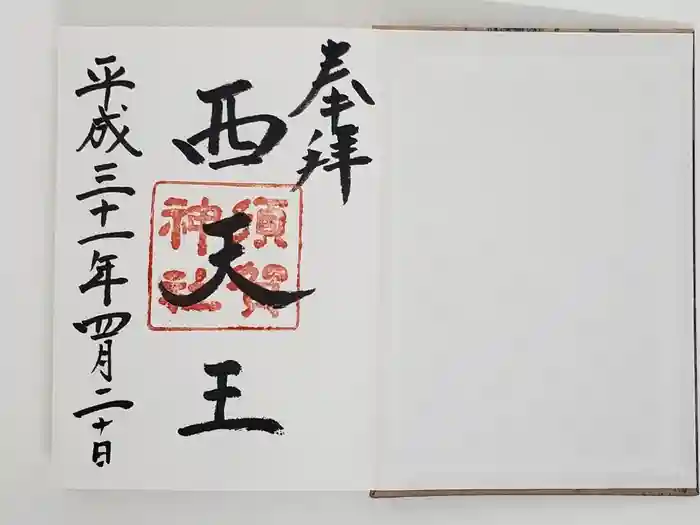 奉拝
西天王
須賀
神社
平成三十一年四月二十日